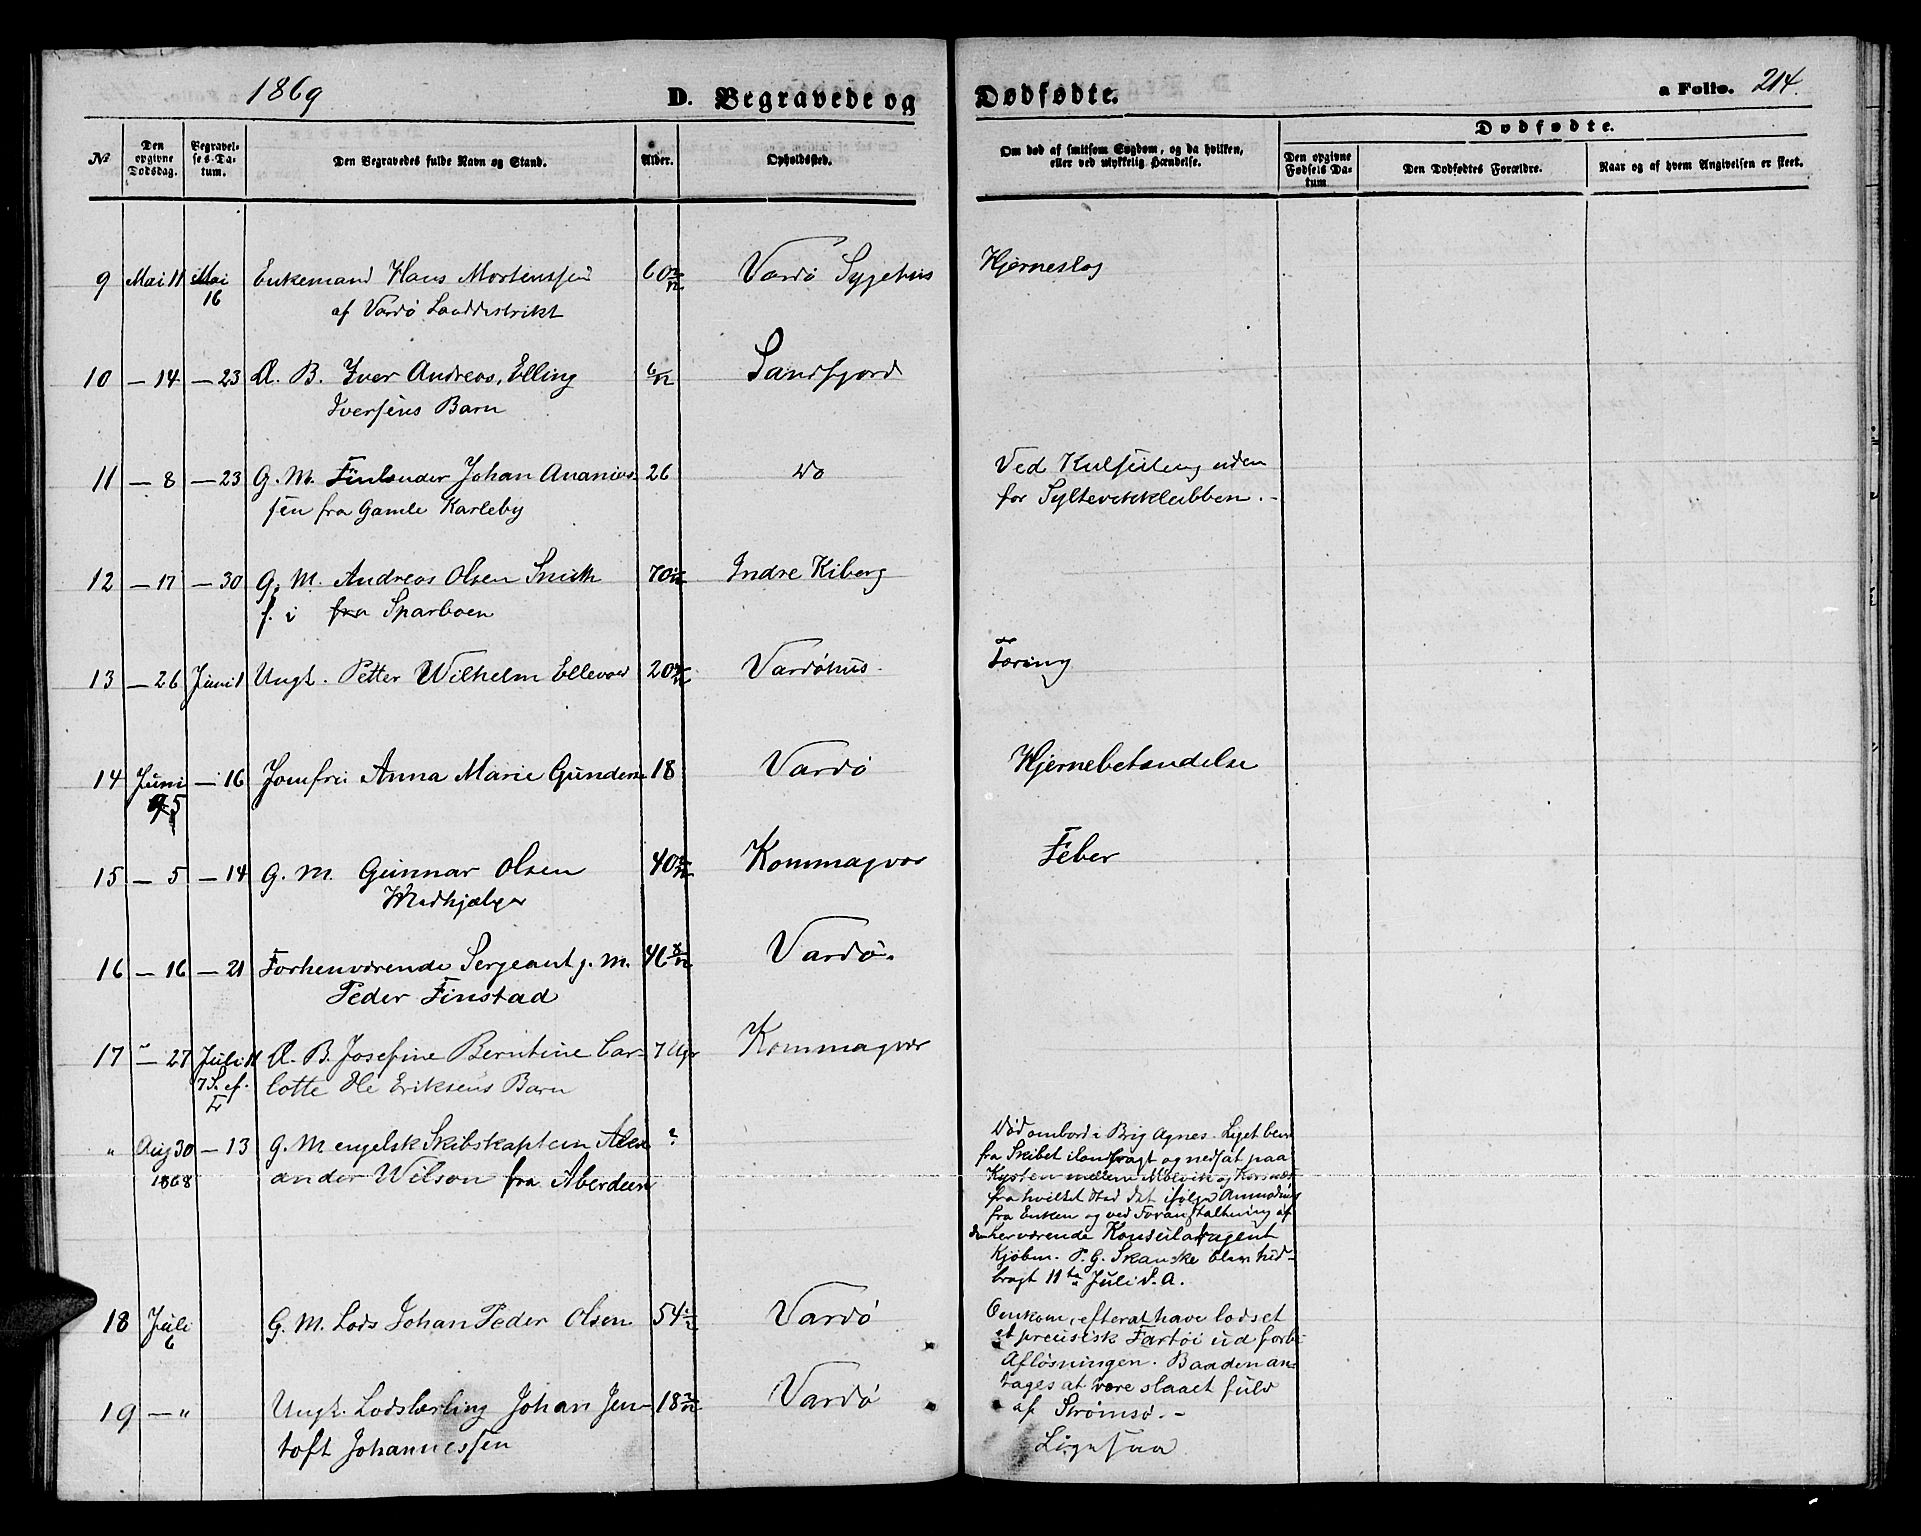 1869
D. Begravede og Dødfødte.
a Folio. 214.
No
Den opgivne Dødsdag.
Begravelses-Datum.
Den Begravedes fulde Navn og Stand.
Alder.
Opholdssted.
Om død af smitsom Sygdom, og da hvilken, eller ved ulykkelig Hændelse.
Dødfødte.
Den opgivne Fødsels Datum
Den Dødfødtes Forældre.
Naar og af hvem Angivelsen er skeet.
9 Mai 11 Mai 16 Enkemand Hans Mortenssen 60 Vardø Sygehus Hjerneslag
af Vardø Landdistrikt
10 — 14 — 23 D. B. Iver Andreas, Elling 6/12 Sandfjord
Iversens Barn
11 — 8 — 23 G. M. Finlænder Johan Ananias- 26 Do Ved Kulseiling uden
sen fra Gamle Karleby for Syltevikklubben. -
12 — 17 — 30 G. M. Andreas Olsen Smith 70 Indre Kiberg
f. i fra Sparboen
13 — 26 Juni 1 Ungk. Petter Wilhelm Ellevold 20 Vardøhus. Tæring
14 Juni 5 — 16 Jomfru Anna Marie Gundersen 18 Vardø Hjernebetændelse
15 — 5 — 14 G. M. Gunnar Olsen 40 Kommagvær Feber
Medhjælper
16 — 16 — 21 Forhenværende Sergeant g. M. 46 Vardø.
Peder Finstad
17 — 27 Juli 11 D. B. Josefine Berntine Car- 7 Uger Kommagvær
7 S. ef. lotte Ole Eriksens Barn
" Aug 30 — 13 G. M engelsk Skibskaptein Alex ? Død ombord i Brig Agnes. Liget blev
1868 ander Wilson fra Aberdeen fra Skibet ilandbragt og nedsat paa
Kysten mellem Molvik og Korsnæs
fra hvilket Sted det ifølge Anmodning
fra Enken og ved Foranstaltning af
den herværende Konsularagent
Kjøbm. P. G. Skanske blev hid-
bragt 11te Juli d. A.
18 Juli 6 G. M. Lods Johan Peder Olsen 54 Vardø Omkom, efter at have lodset
et preusisk Fartøi ud forbi
Afløsningen. Baaden an-
tages at være slaaet fuld
af Strømsø. -
19 — " Ungk. Lodslærling Johan Jen- 18 Vardø Ligesaa
toft Johannessen